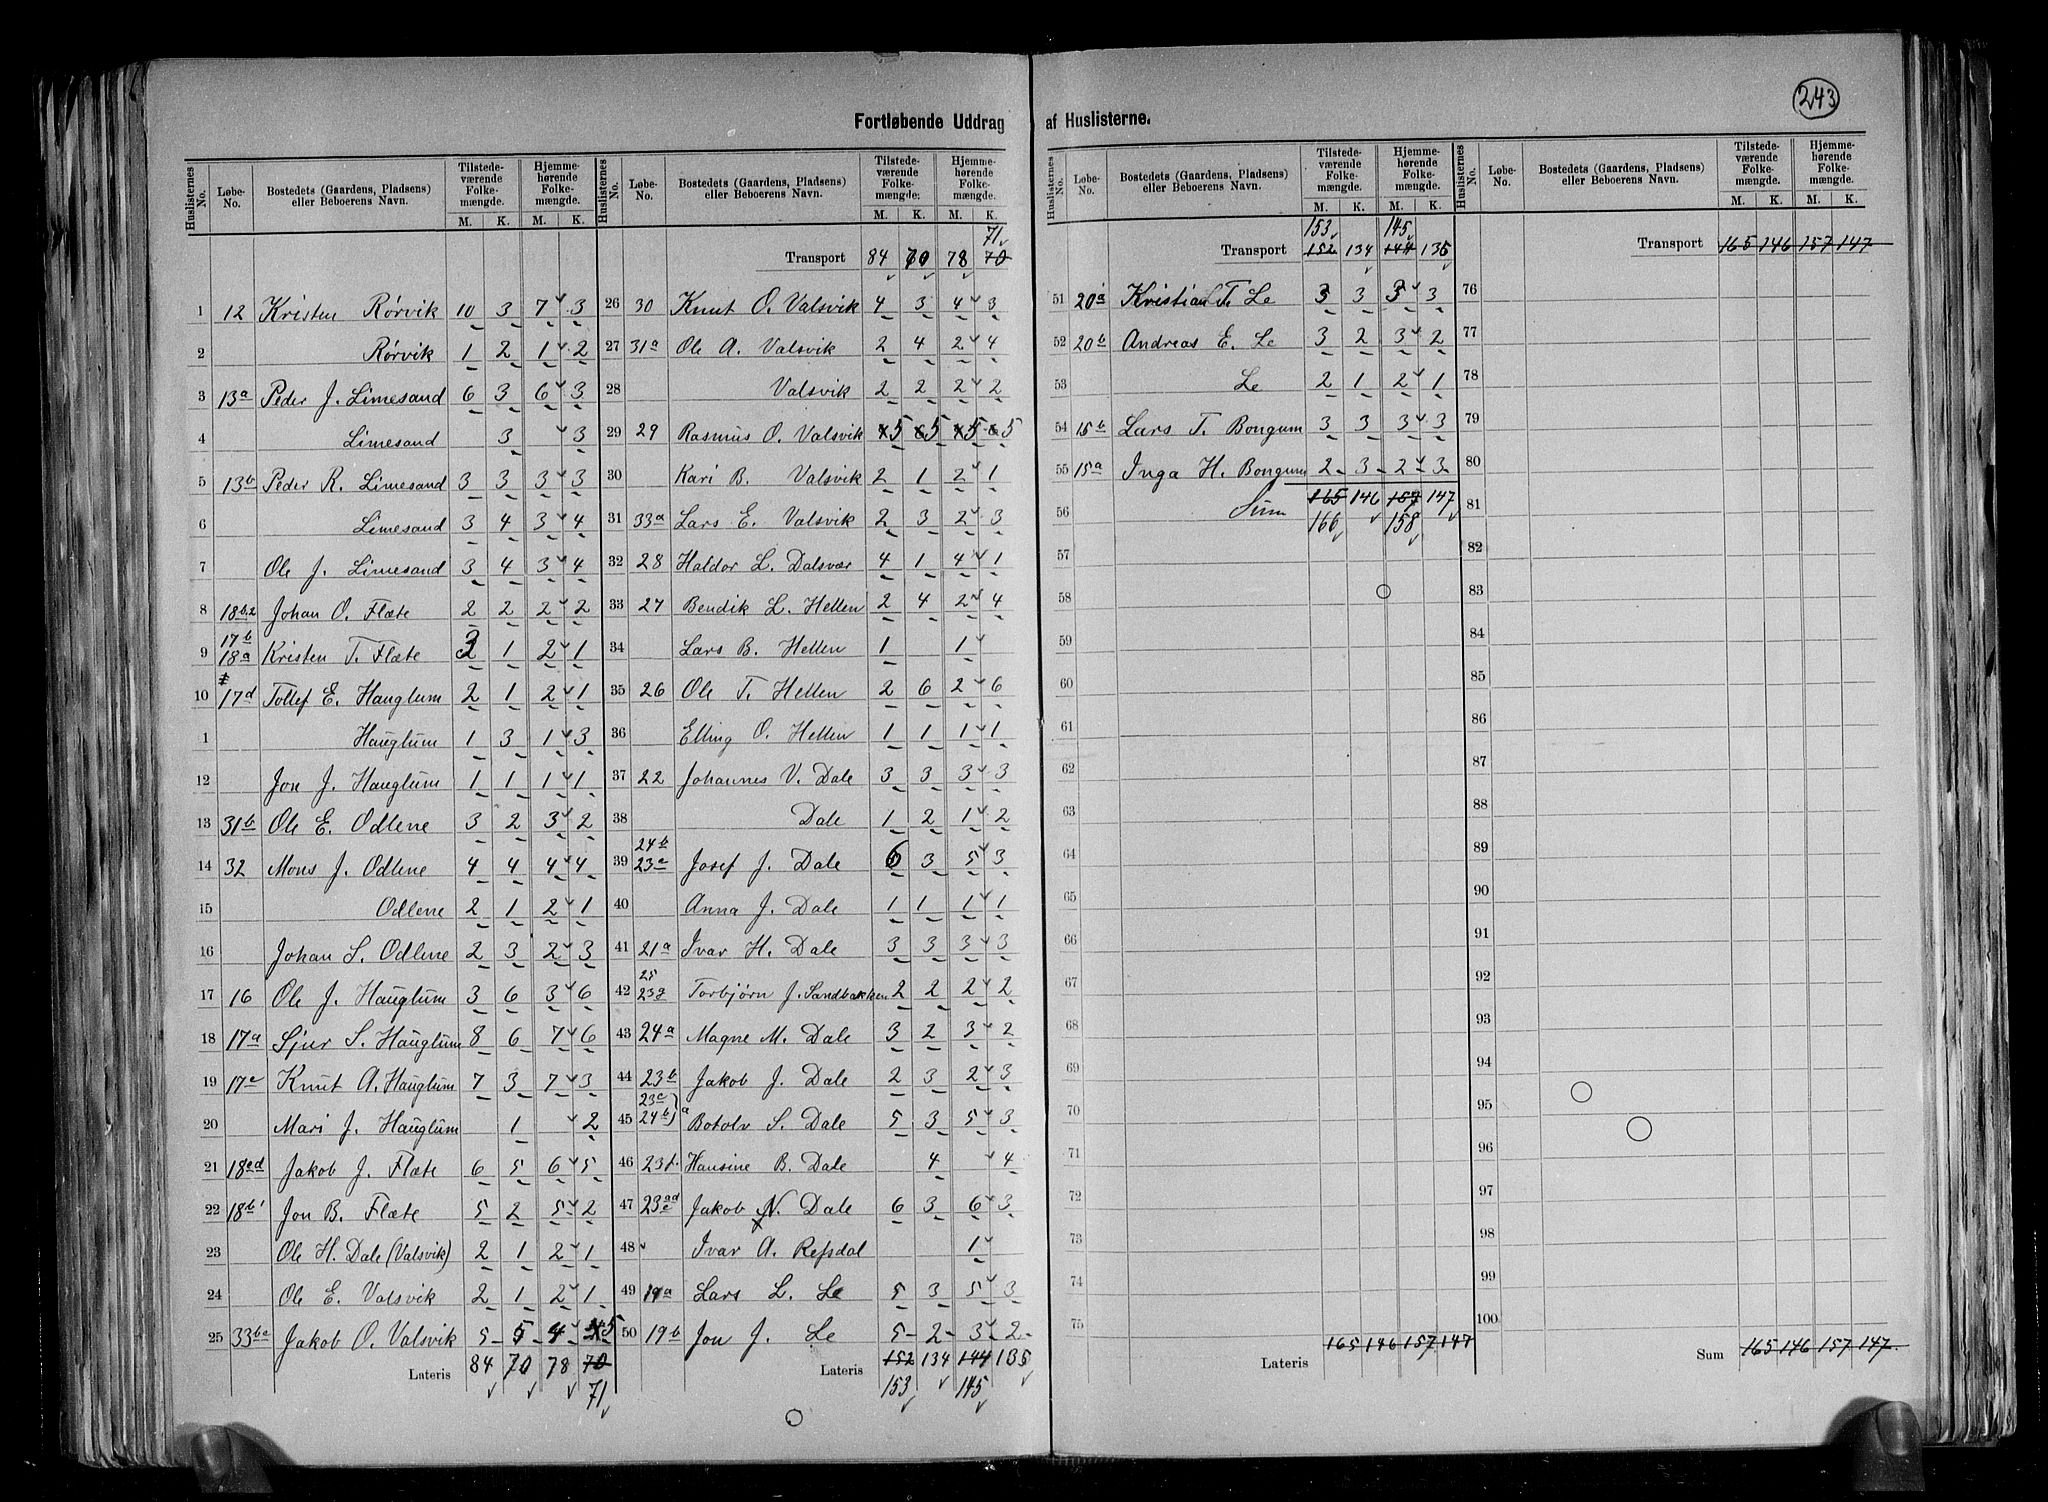 243
Fortløbende Uddrag af Huslisterne.
Huslisternes No. | Løbe-No. | Bostedets (Gaardens, Pladsens) eller Beboerens Navn. | Tilstedeværende Folkemængde. M. K. | Hjemmehørende Folkemængde. M. K.
1 12 Kristen Rørvik 10 3 7 3
2 Rørvik 1 2 1 2
3 13a Peder J. Limesand 6 3 6 3
4 Limesand 3 3
5 13b Peder R. Limesand 3 3 3 3
6 Limesand 3 4 3 4
7 Ole J. Limesand 3 4 3 4
8 18b2 Johan O. Flæte 2 2 2 2
9 17b 18a Kristen T. Flæte 1 2 1
10 17d Tollef E. Hauglum 2 1 2 1
1 Hauglum 1 3 1 3
12 Jon J. Hauglum 1 1 1 1
13 31b Ole E. Odlene 3 2 3 2
14 32 Mons J. Odlene 4 4 4 4
15 Odlene 2 1 2 1
16 Johan S. Odlene 2 3 2 3
17 16 Ole J. Hauglum 3 6 3 6
18 17a Sjur S. Hauglum 8 6 7 6
19 17c Knut A. Hauglum 7 3 7 3
20 Mari J. Hauglum 1 2
21 18cd Jakob J. Flæte 6 5 6 5
22 18b1 Jon B. Flæte 5 2 5 2
23 Ole H. Dale (Valsvik) 2 1 2 1
24 Ole E. Valsvik 2 1 2 1
25 33bc Jakob O. Valsvik 5 5 4 5
Lateris 84 70 78 70
71
Huslisternes No. | Løbe-No. | Bostedets (Gaardens, Pladsens) eller Beboerens Navn. | Tilstedeværende Folkemængde. M. K. | Hjemmehørende Folkemængde. M. K.
71
Transport 84 70 78 70
26 30 Knut O. Valsvik 4 3 4 3
27 31a Ole A. Valsvik 2 4 2 4
28 Valsvik 2 2 2 2
29 29 Rasmus O. Valsvik 5 5 5 5
30 Kari B. Valsvik 2 1 2 1
31 33a Lars E. Valsvik 2 3 2 3
32 28 Haldor L. Dalsvær 4 1 4 1
33 27 Bendik L. Hellen 2 4 2 4
34 Lars B. Hellen 1 1
35 26 Ole T. Hellen 2 6 2 6
36 Elling O. Hellen 1 1 1 1
37 22 Johannes V. Dale 3 3 3 3
38 Dale 1 2 1 2
39 24b 23e Josef J. Dale 6 3 5 3
40 Anna J. Dale 1 1 1 1
41 21a Ivar H. Dale 3 3 3 3
42 25 23g Torbjørn J. Sandbakken 2 2 2 2
43 24a Magne M. Dale 3 2 3 2
44 23b Jakob J. Dale 2 3 2 3
45 23c 24b a Botolv S. Dale 5 3 5 3
46 23f. Hansine B. Dale 4 4
47 23ad e Jakob N. Dale 6 3 6 3
48 Ivar A. Refsdal 1
49 19a Lars L. Le 5 3 5 3
50 19b Jon J. Le 5 2 3 2
Lateris 152 134 144 135
153 145
Huslisternes No. | Løbe-No. | Bostedets (Gaardens, Pladsens) eller Beboerens Navn. | Tilstedeværende Folkemængde. M. K. | Hjemmehørende Folkemængde. M. K.
153 145
Transport 152 134 144 135
51 20a Kristian T. Le 3 3 3 3
52 20b Andreas E. Le 3 2 3 2
53 Le 2 1 2 1
54 15b Lars T. Bongum 3 3 3 3
55 15a Inga H. Bongum 2 3 2 3
56 Sum 165 146 157 147
166 158
57
58
59
60
61
62
63
64
65
66
67
68
69
70
71
72
73
74
75
Lateris 165 146 157 147
Huslisternes No. | Løbe-No. | Bostedets (Gaardens, Pladsens) eller Beboerens Navn. | Tilstedeværende Folkemængde. M. K. | Hjemmehørende Folkemængde. M. K.
Transport 165 146 157 147
76
77
78
79
80
81
82
83
84
85
86
87
88
89
90
91
92
93
94
95
96
97
98
99
100
Sum 165 146 157 147.